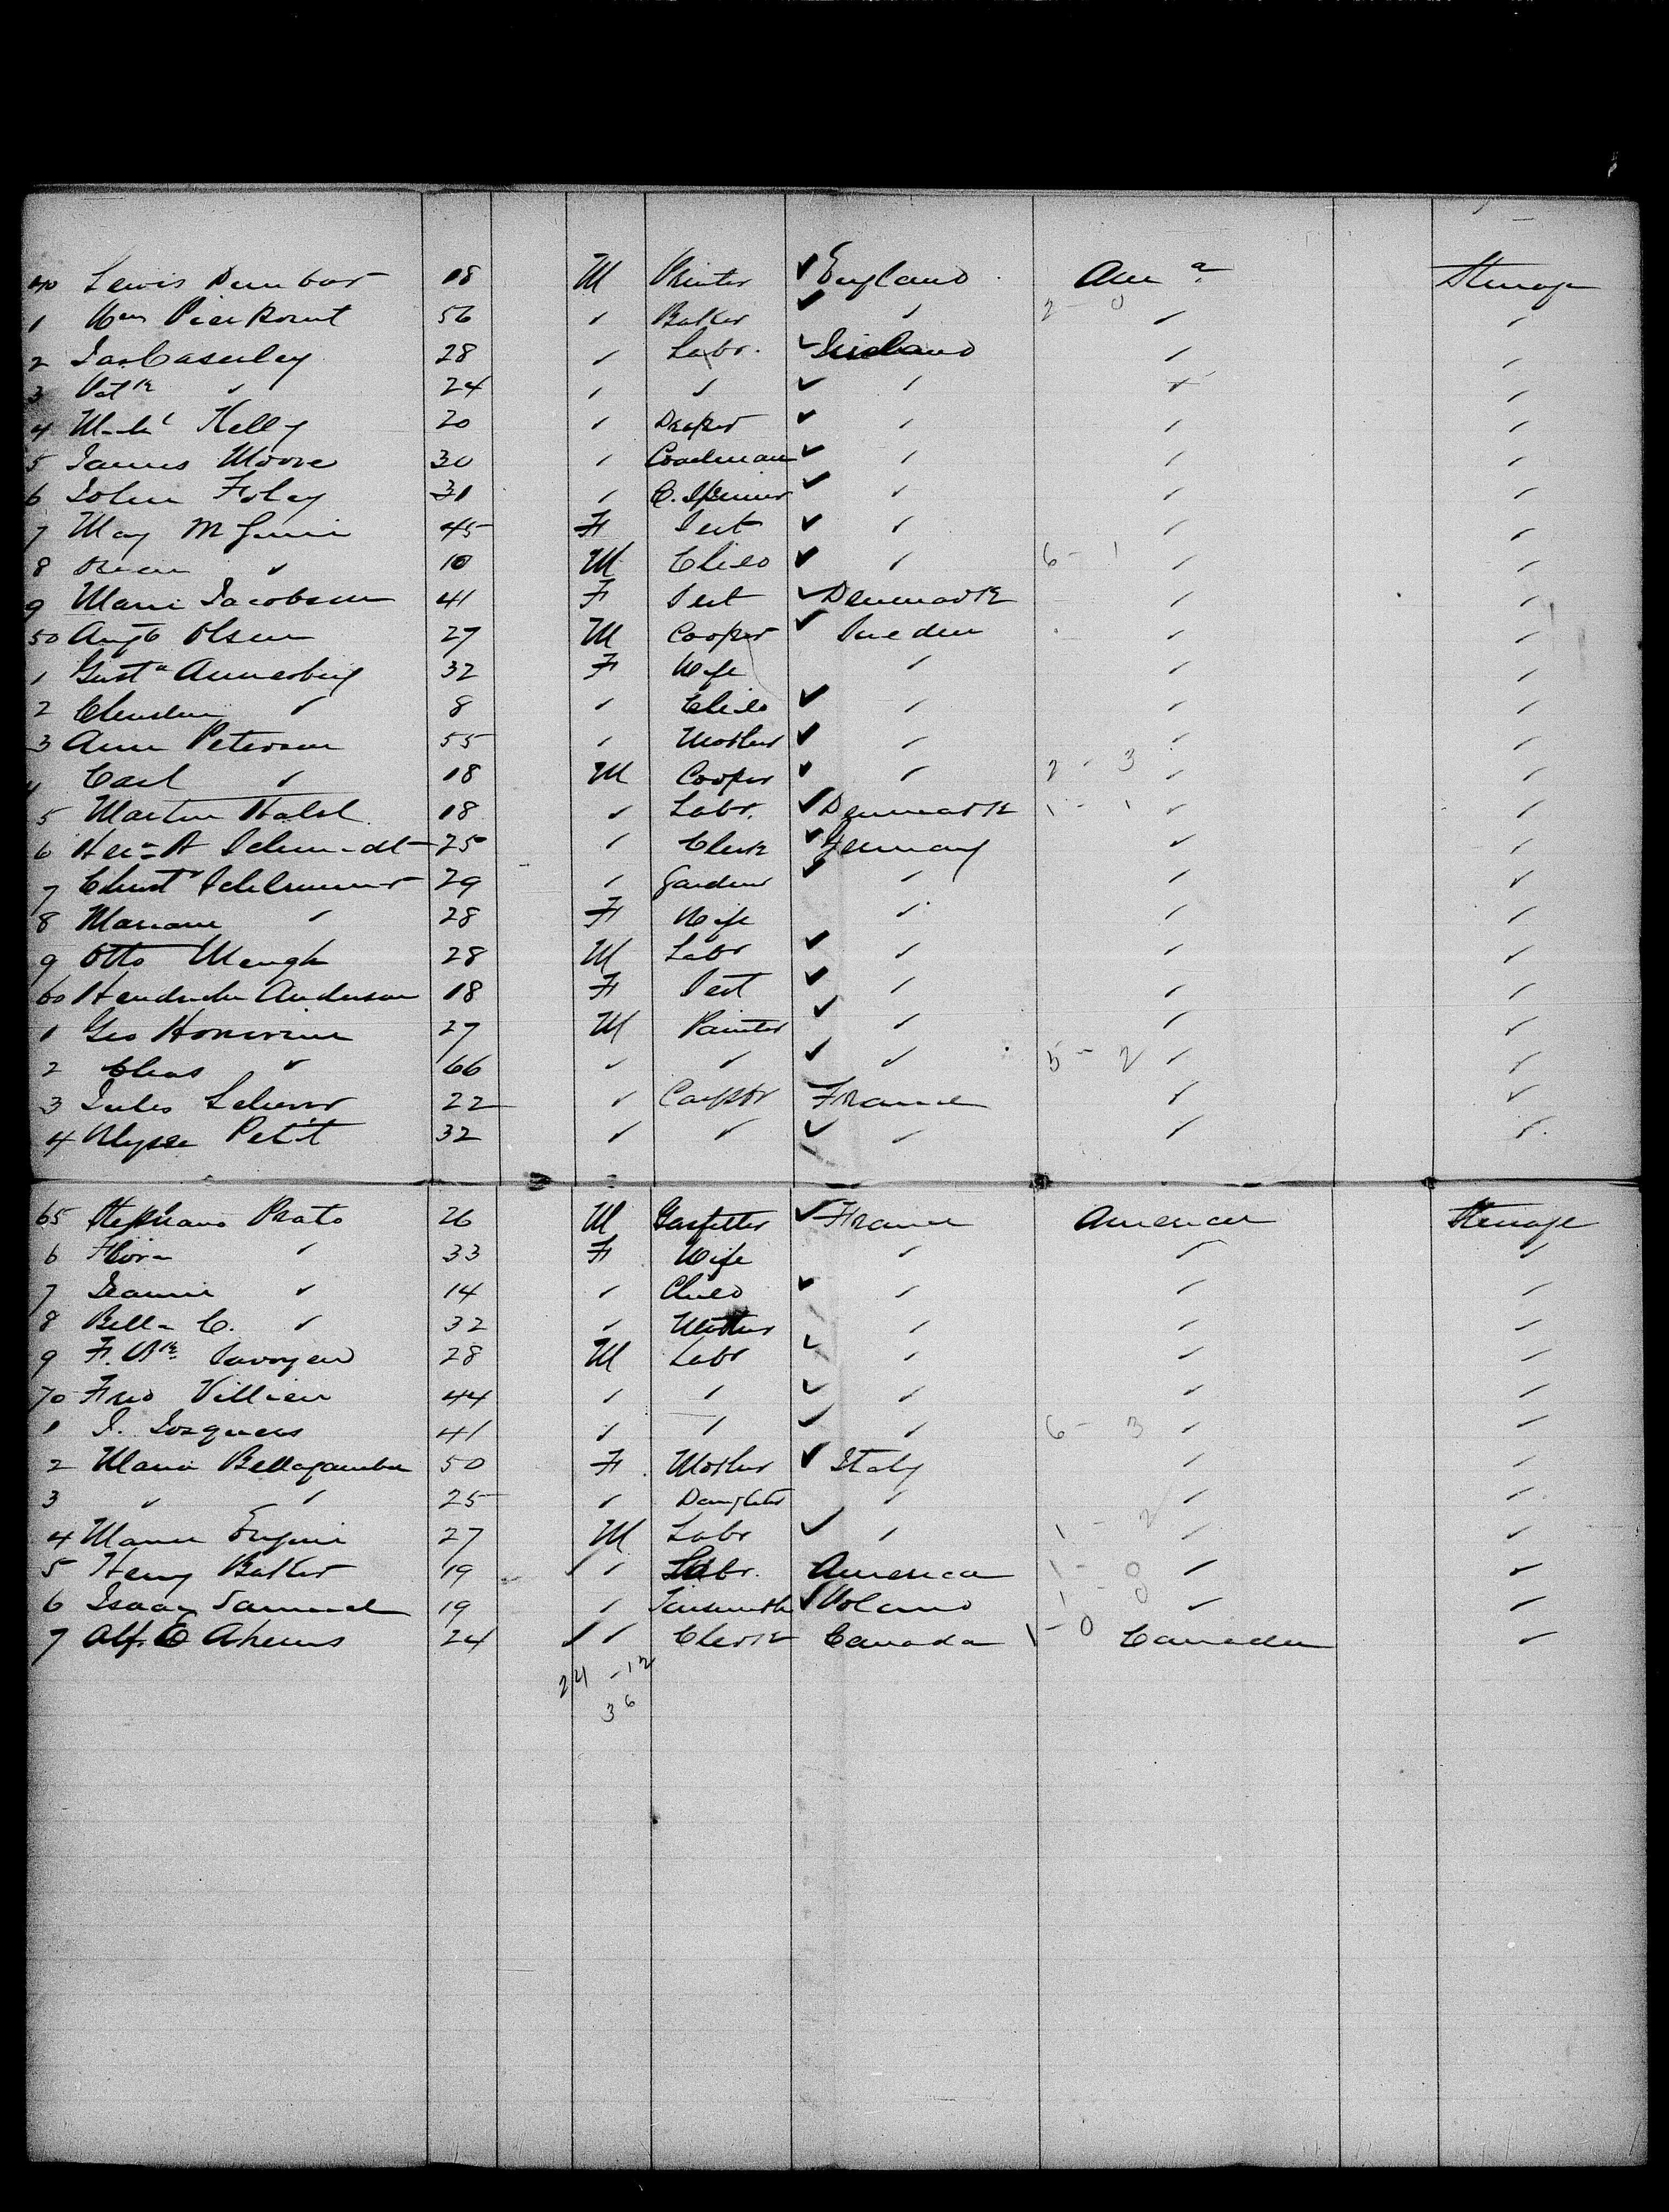 40 Lewis Dunbar 18 M Printer ✓ England Am.a Steerage
1 Wm Pierpoint 56 ✓ Baker ✓ ✓ 2 - 0 ✓ ✓
2 Jas Caserley 28 ✓ Labr. ✓ Ireland ✓ ✓
3 Patk ✓ 24 ✓ ✓ ✓ ✓ ✓ ✓
4 Michl Kelly 20 ✓ Draper ✓ ✓ ✓ ✓
5 James Moore 30 ✓ Coachman ✓ ✓ ✓ ✓
6 John Foley 31 ✓ C. Spinner ✓ ✓ ✓ ✓
7 May 45 F Sert ✓ ✓ ✓ ✓
8 ✓ 10 M Child ✓ ✓ 6 - 1 ✓ ✓
9 Marie Jacobsen 41 F Sert ✓ Denmark ✓ ✓
50 Augt Olsen 27 M Cooper ✓ Sweden ✓ ✓
1 Gusta Annerberg 32 F Wife ✓ ✓ ✓
2 ✓ 8 ✓ Child ✓ ✓ ✓ ✓
3 Ann Peterson 55 ✓ Mother ✓ ✓ ✓ ✓
4 Carl ✓ 18 M Cooper ✓ ✓ 2 - 3 ✓ ✓
5 Martin 18 ✓ Labr. ✓ Denmark 1 - 1 ✓ ✓
6 Schmidt 25 ✓ Clerk ✓ Germany ✓ ✓
7 29 ✓ Gardener ✓ ✓ ✓ ✓
8 Mariane ✓ 28 F Wife ✓ ✓ ✓
9 Otto 28 M Labr ✓ ✓ ✓ ✓
60 Anderson 18 F Sert ✓ ✓ ✓ ✓
1 Geo 27 M Painter ✓ ✓ ✓ ✓
2 Chas ✓ 66 ✓ ✓ ✓ ✓ 5 - 2 ✓ ✓
3 Jules 22 ✓ Carptr France ✓ ✓
4 Ulysse Petit 32 ✓ ✓ ✓ ✓ ✓ ✓
65 Stephano Prato 26 M Gasfitter ✓ France American Steerage
6 Flora ✓ 33 F Wife ✓ ✓ ✓
7 Jeannie ✓ 14 ✓ Child ✓ ✓ ✓ ✓
8 Bella C. ✓ 32 ✓ Mother ✓ ✓ ✓
9 F. Savoyen 28 M Labr ✓ ✓ ✓ ✓
70 Fred Villien 44 ✓ ✓ ✓ ✓ ✓ ✓
1 J. 41 ✓ ✓ ✓ ✓ 6 - 3 ✓ ✓
2 Maria Bellagamba 50 F Mother ✓ Italy ✓ ✓
3 ✓ ✓ 25 ✓ Daughter ✓ ✓ ✓
4 27 M Labr ✓ ✓ 1 - 2 ✓ ✓
5 Henry Baker 19 ✓ ✓ Labr. America 1 - 0 ✓ ✓
6 Isaac Samuel 19 ✓ Tinsmith ✓ Poland 1 - 0 ✓ ✓
7 Alf. E Ahearns 24 ✓ ✓ Clerk Canada 1 - 0 Canada ✓
24 - 12
36